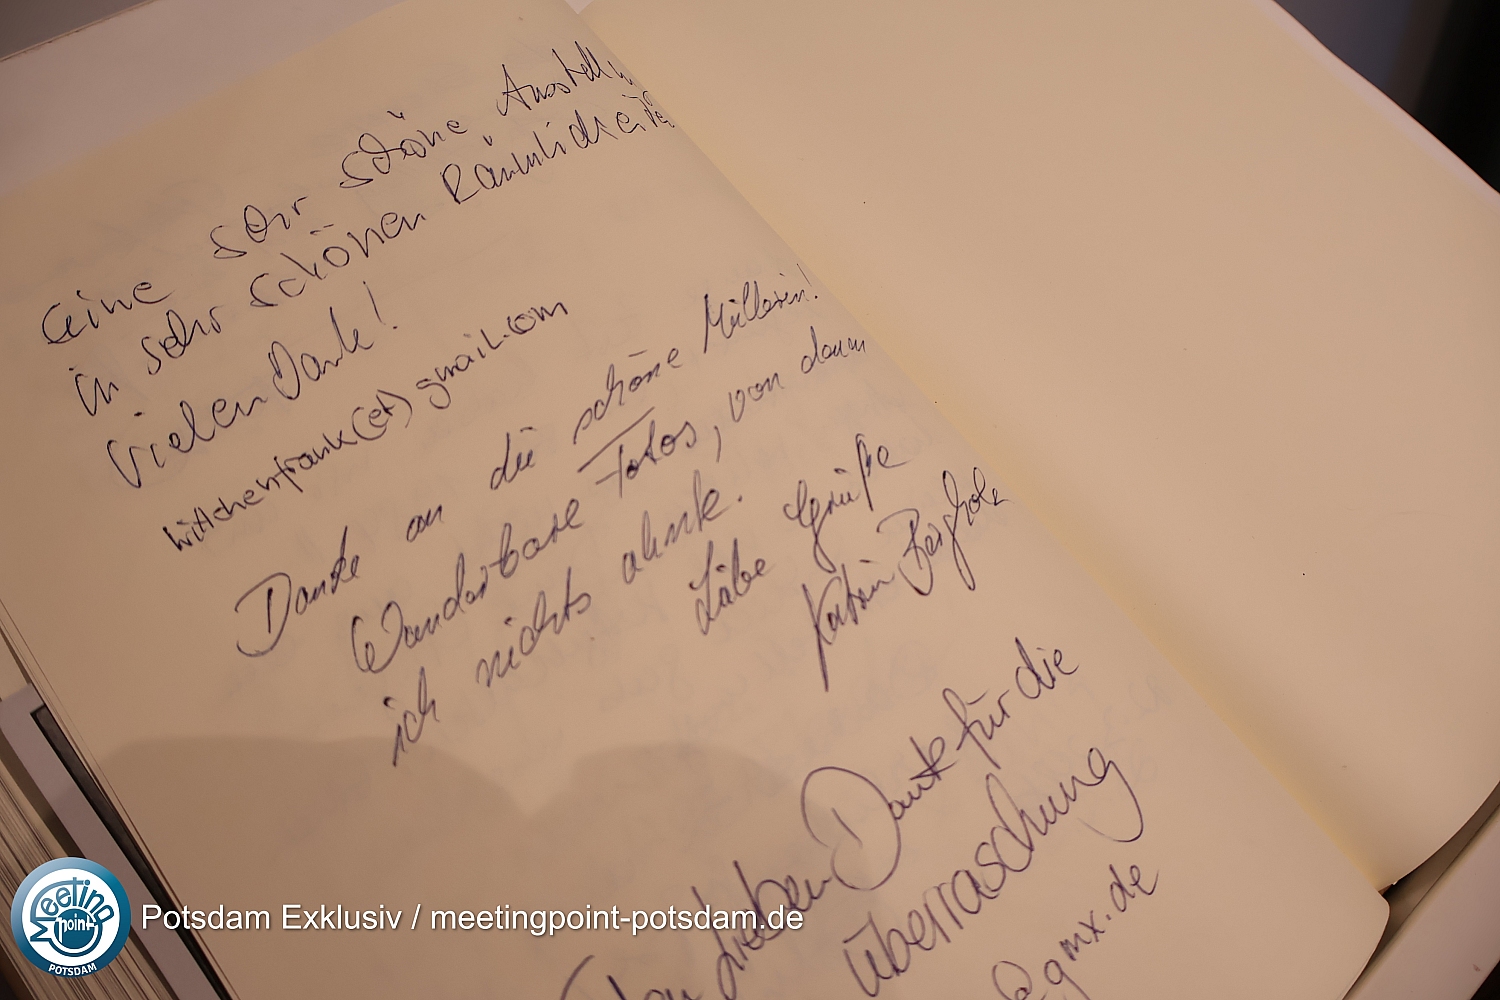 Eine sehr schöne Ausstellu
in sehr schönen Räumlichkeite
Vielen Dank!
wittchenfrank(at)gmail.com
Danke an die schöne Müllerin!
Wunderbare Fotos, von denen
ich nichts ahnte.
Liebe Grüße
Katrin
Lieben Dank für die
überraschung
@gmx.de
Meeting
point
POTSDAM
Potsdam Exklusiv / meetingpoint-potsdam.de